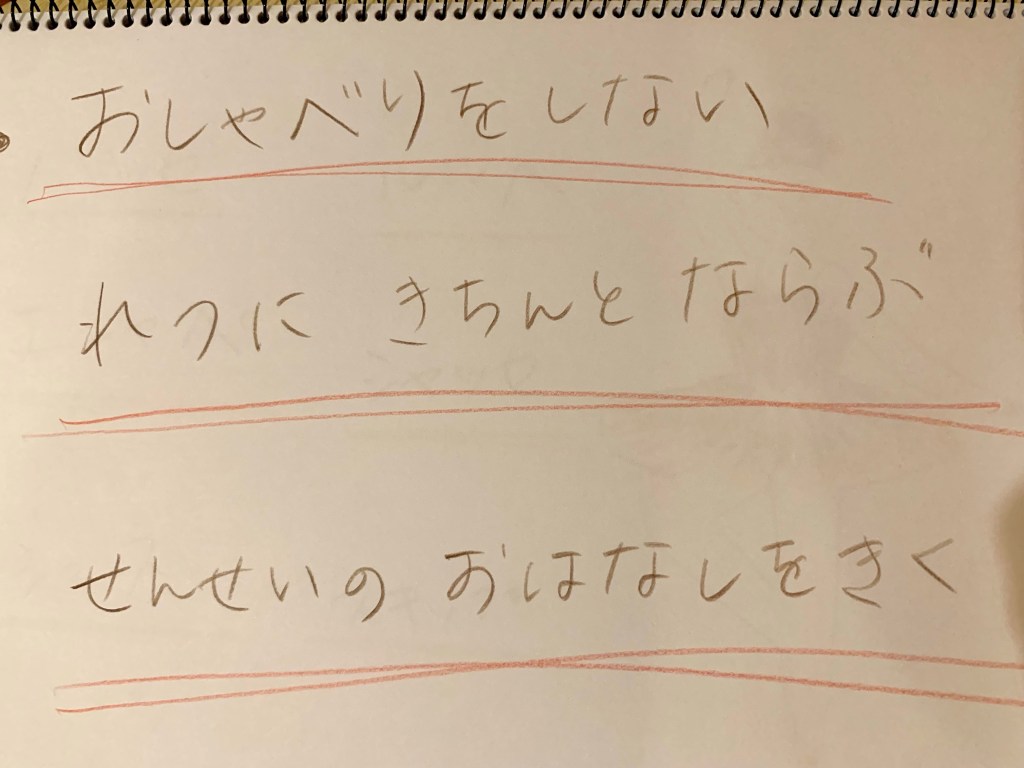 おしゃべりをしない
れつに きちんと ならぶ
せんせいの おはなしをきく